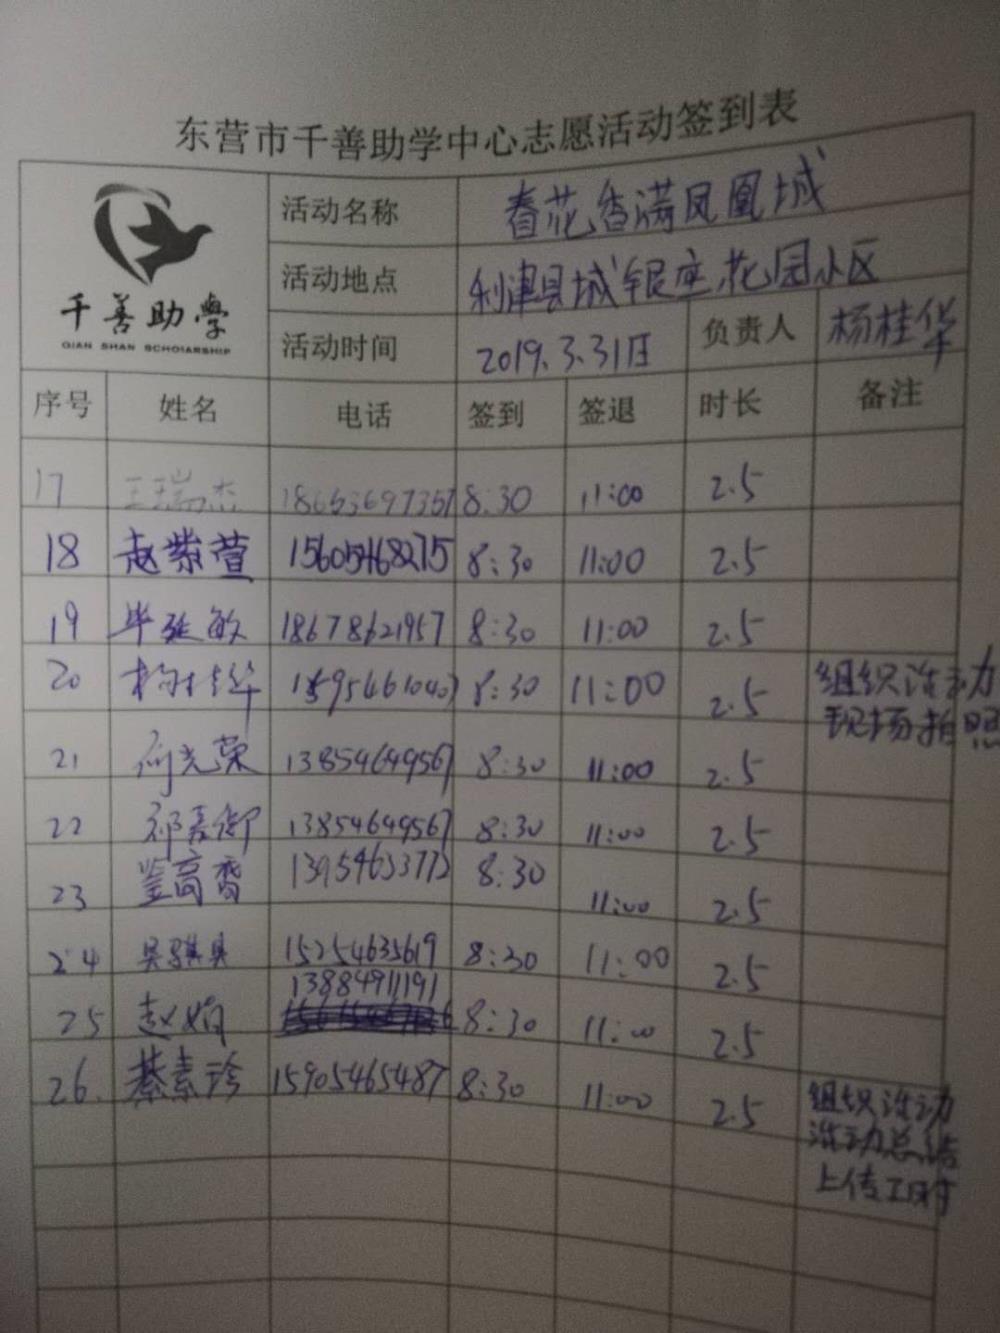 东营市千善助学中心志愿活动签到表
千善助学
QIAN SHAN SCHOLARSHIP
活动名称 春花香满凤凰城
活动地点 利津县城银座花园小区
活动时间 2019.3.31日 负责人 杨桂华
序号 姓名 电话 签到 签退 时长 备注
17 王瑞杰 18653697357 8:30 11:00 2.5
18 赵紫萱 15605468275 8:30 11:00 2.5
19 毕延敏 18678621957 8:30 11:00 2.5
20 杨桂华 8:30 11:00 2.5 组织活动
现场拍照
21 何光荣 13854649567 8:30 11:00 2.5
22 祁嘉御 13854649567 8:30 11:00 2.5
23 13954653772 8:30 11:00 2.5
24 吴骐具 15254635619 8:30 11:00 2.5
25 赵娟 13884911191 8:30 11:00 2.5
26. 綦素珍 15905465487 8:30 11:00 2.5 组织活动
活动总结
上传工时